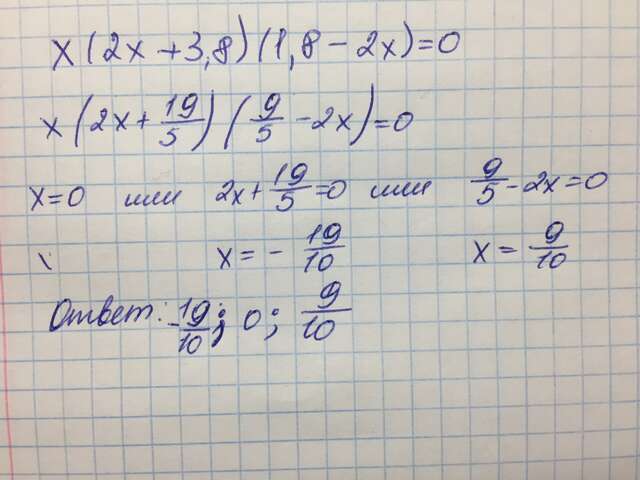 x(2x+3,8)(1,8-2x)=0
x(2x+19/5)(9/5-2x)=0
x=0 или 2x+19/5=0 или 9/5-2x=0
x=-19/10 x=9/10
Ответ: -19/10; 0; 9/10